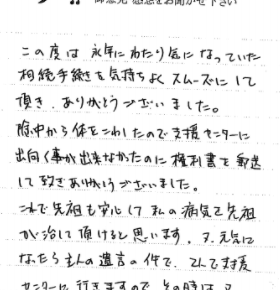 ご意見・感想をお聞かせ下さい
この度は 永年にわたり気になっていた
相続手続きを気持ちよくスムーズにして
頂き、ありがとうございました。
途中から体をこわしたので支援センターに
出向く事が出来なかったのに権利書を郵送
して頂きありがとうございました。
これで先祖も安心して私の病気も先祖
が治して頂けると思います。又、元気に
なったら主人の遺言の件で、
センターに行きますので、その時は又